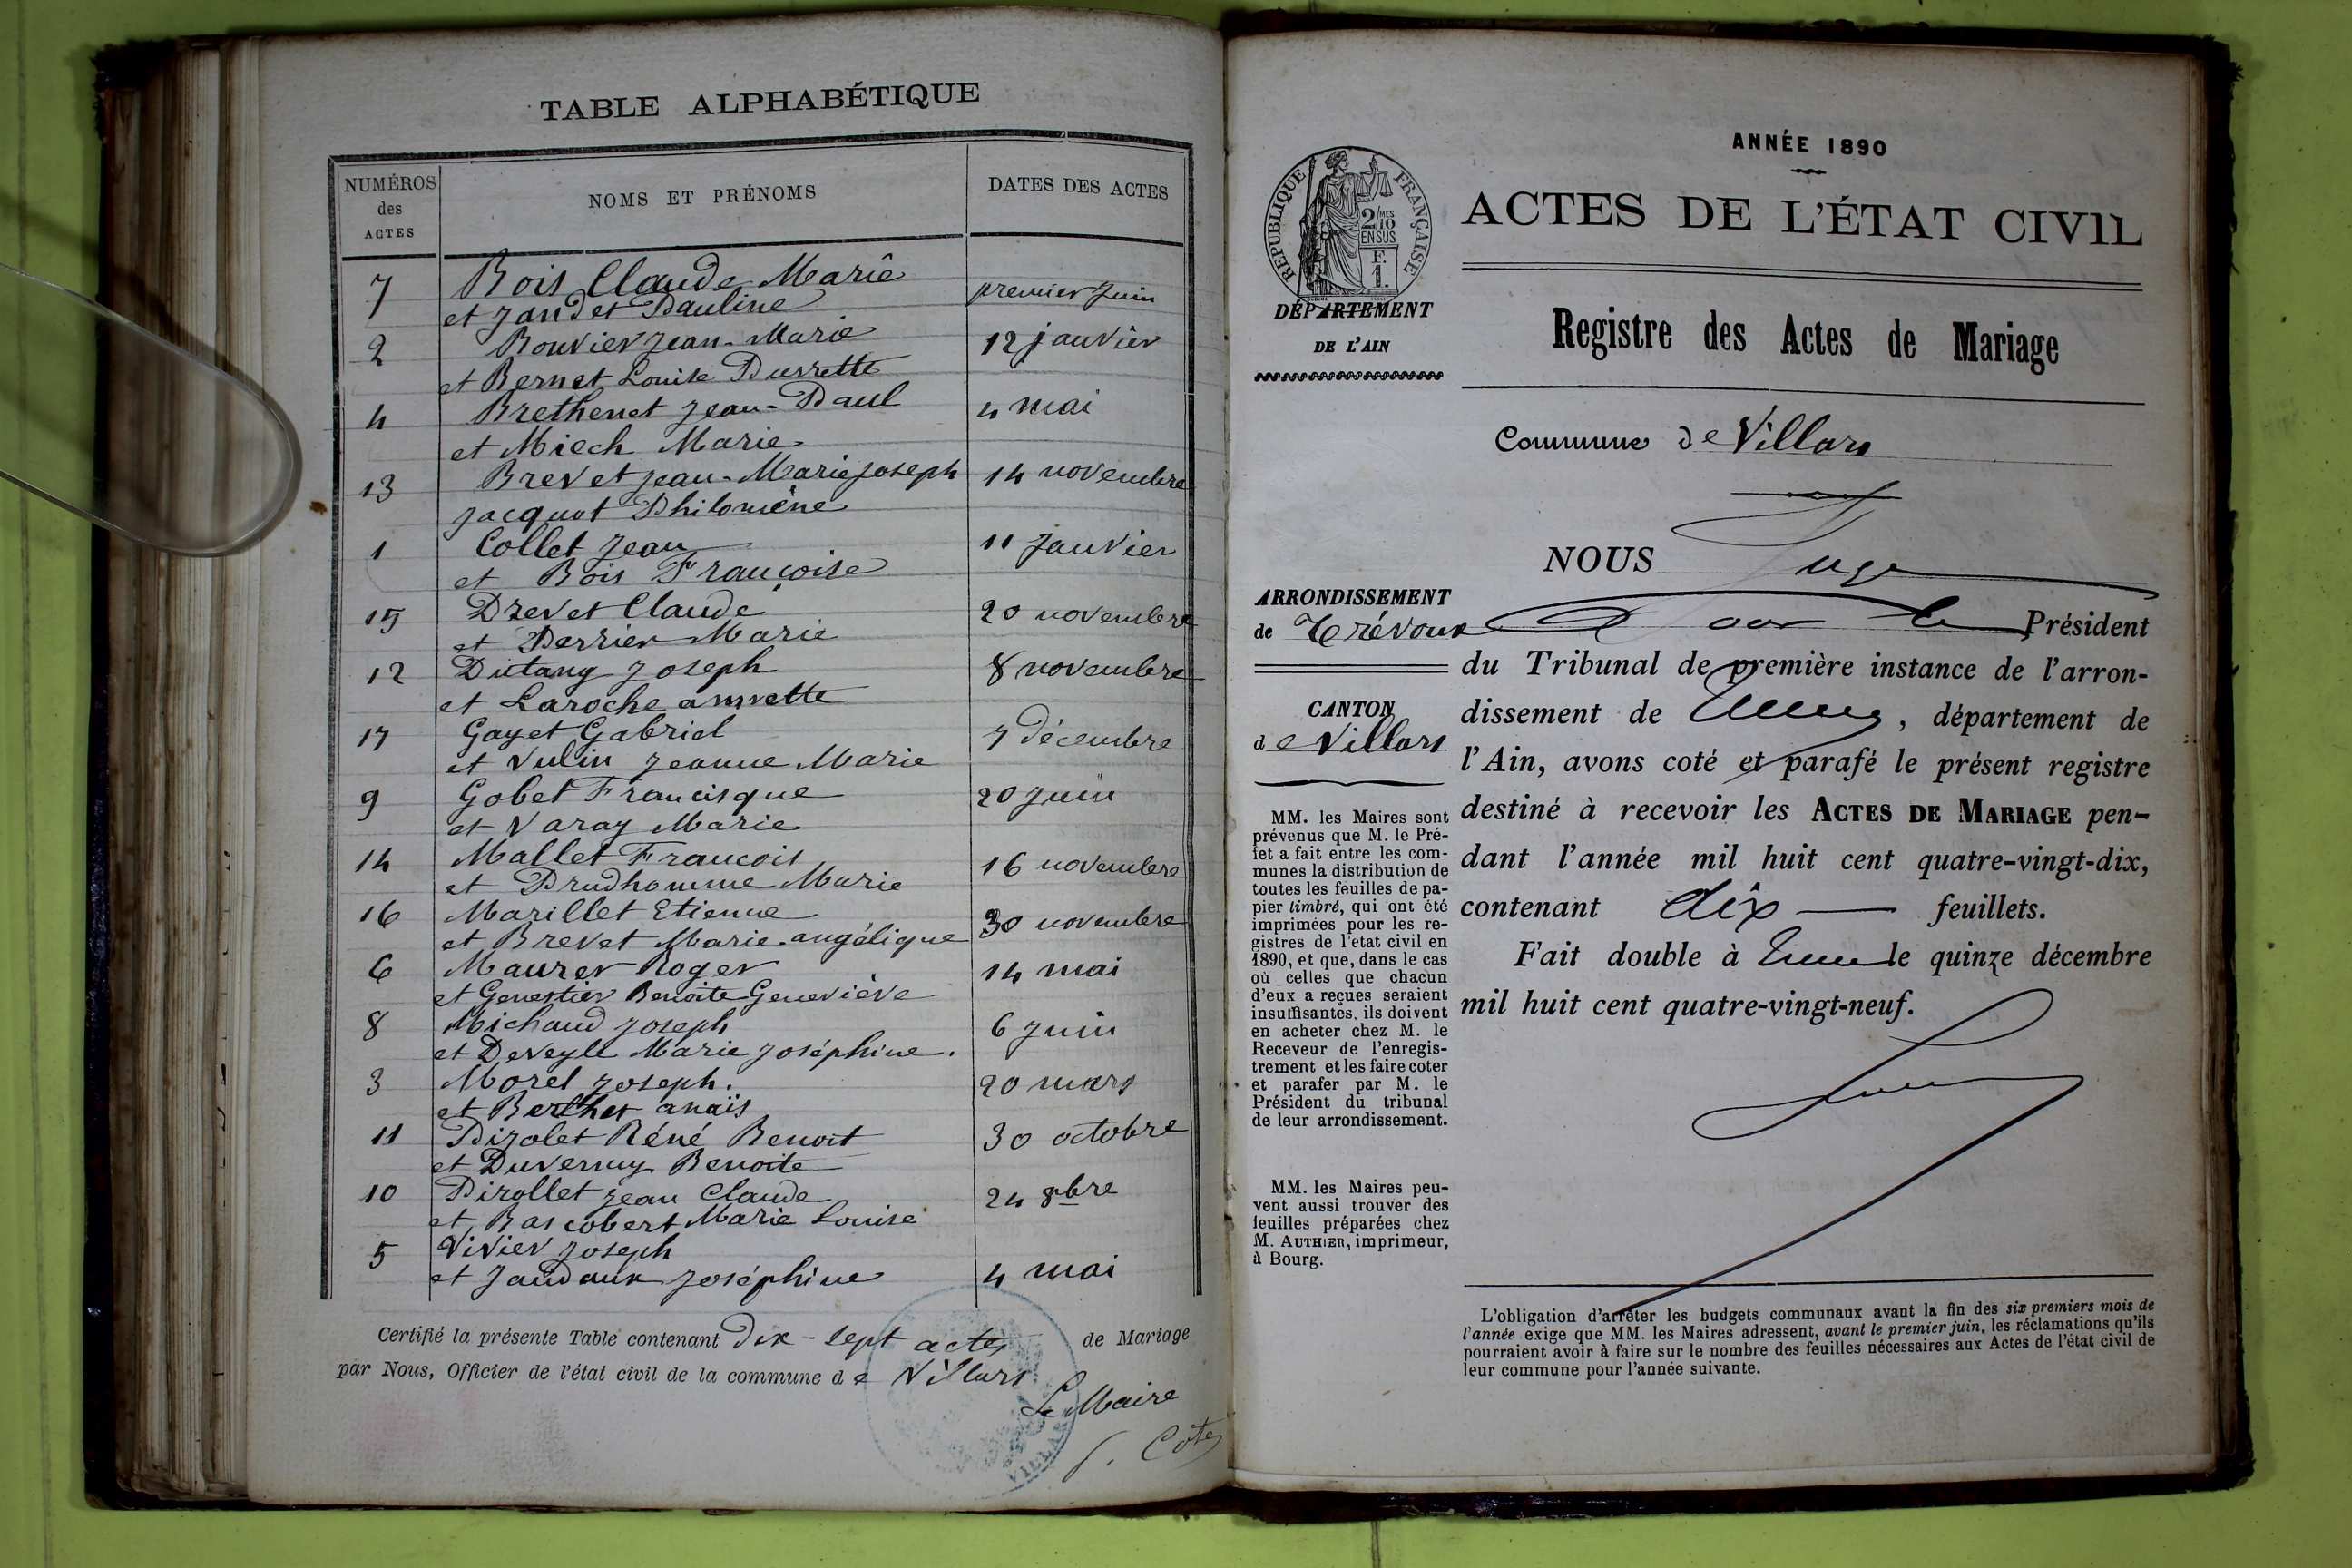 TABLE ALPHABÉTIQUE
NUMÉROS des ACTES
NOMS ET PRÉNOMS
DATES DES ACTES
7 Bois Claude Marie
et Jandet Pauline premier Juin
2 Bouvier Jean-Marie 12 janvier
et Bernet Louise Purrette
4 Brethenet Jean-Paul 4 mai
et Miech Marie
13 Brevet Jean-Marie Joseph 14 novembre
Jacquot Philomène
1 Collet Jean 11 Janvier
et Bois Françoise
15 Drevet Claude 20 novembre
et Perrier Marie
12 Dutang Joseph 8 novembre
et Laroche annette
17 Gayet Gabriel 7 décembre
et Vulin Jeanne Marie
9 Gobet Francisque 20 Juin
et Varay Marie
14 Mallet Francois 16 novembre
et Prudhomme Marie
16 Marillet Etienne 30 novembre
et Brevet Marie-angélique
6 Maurer Roger 14 mai
et Genestier Benoite Geneviève
8 Michaud Joseph 6 Juin
et Deveyle Marie Joséphine.
3 Morel Joseph. 20 mars
et Berthet anaïs
11 Pirolet Réné Benoit 30 octobre
et Duvernay Benoite
10 Pirollet Jean Claude 24 8bre
et Bascobert Marie Louise
5 Vivier Joseph
et Jandaux Joséphine 4 mai
Certifié la présente Table contenant Dix-sept actes de Mariage
par Nous, Officier de l'état civil de la commune de Villars
Le Maire
VILLARS
ANNÉE 1890
RÉPUBLIQUE FRANÇAISE
2/10 MES
EN SUS
F.
1.
ACTES DE L'ÉTAT CIVIL
DÉPARTEMENT
DE L'AIN
Registre des Actes de Mariage
Commune de Villars
NOUS Juge
ARRONDISSEMENT
de Trévoux
CANTON
de Villars
MM. les Maires sont
prévenus que M. le Pré-
fet a fait entre les com-
munes la distribution de
toutes les feuilles de pa-
pier timbré, qui ont été
imprimées pour les re-
gistres de l'état civil en
1890, et que, dans le cas
où celles que chacun
d'eux a reçues seraient
insuffisantes, ils doivent
en acheter chez M. le
Receveur de l'enregis-
trement et les faire coter
et parafer par M. le
Président du tribunal
de leur arrondissement.
MM. les Maires peu-
vent aussi trouver des
feuilles préparées chez
M. AUTHIER, imprimeur,
à Bourg.
Président
du Tribunal de première instance de l'arron-
dissement de , département de
l'Ain, avons coté et parafé le présent registre
destiné à recevoir les ACTES DE MARIAGE pen-
dant l'année mil huit cent quatre-vingt-dix,
contenant dix feuillets.
Fait double à le quinze décembre
mil huit cent quatre-vingt-neuf.
L'obligation d'arrêter les budgets communaux avant la fin des six premiers mois de
l'année exige que MM. les Maires adressent, avant le premier juin, les réclamations qu'ils
pourraient avoir à faire sur le nombre des feuilles nécessaires aux Actes de l'état civil de
leur commune pour l'année suivante.